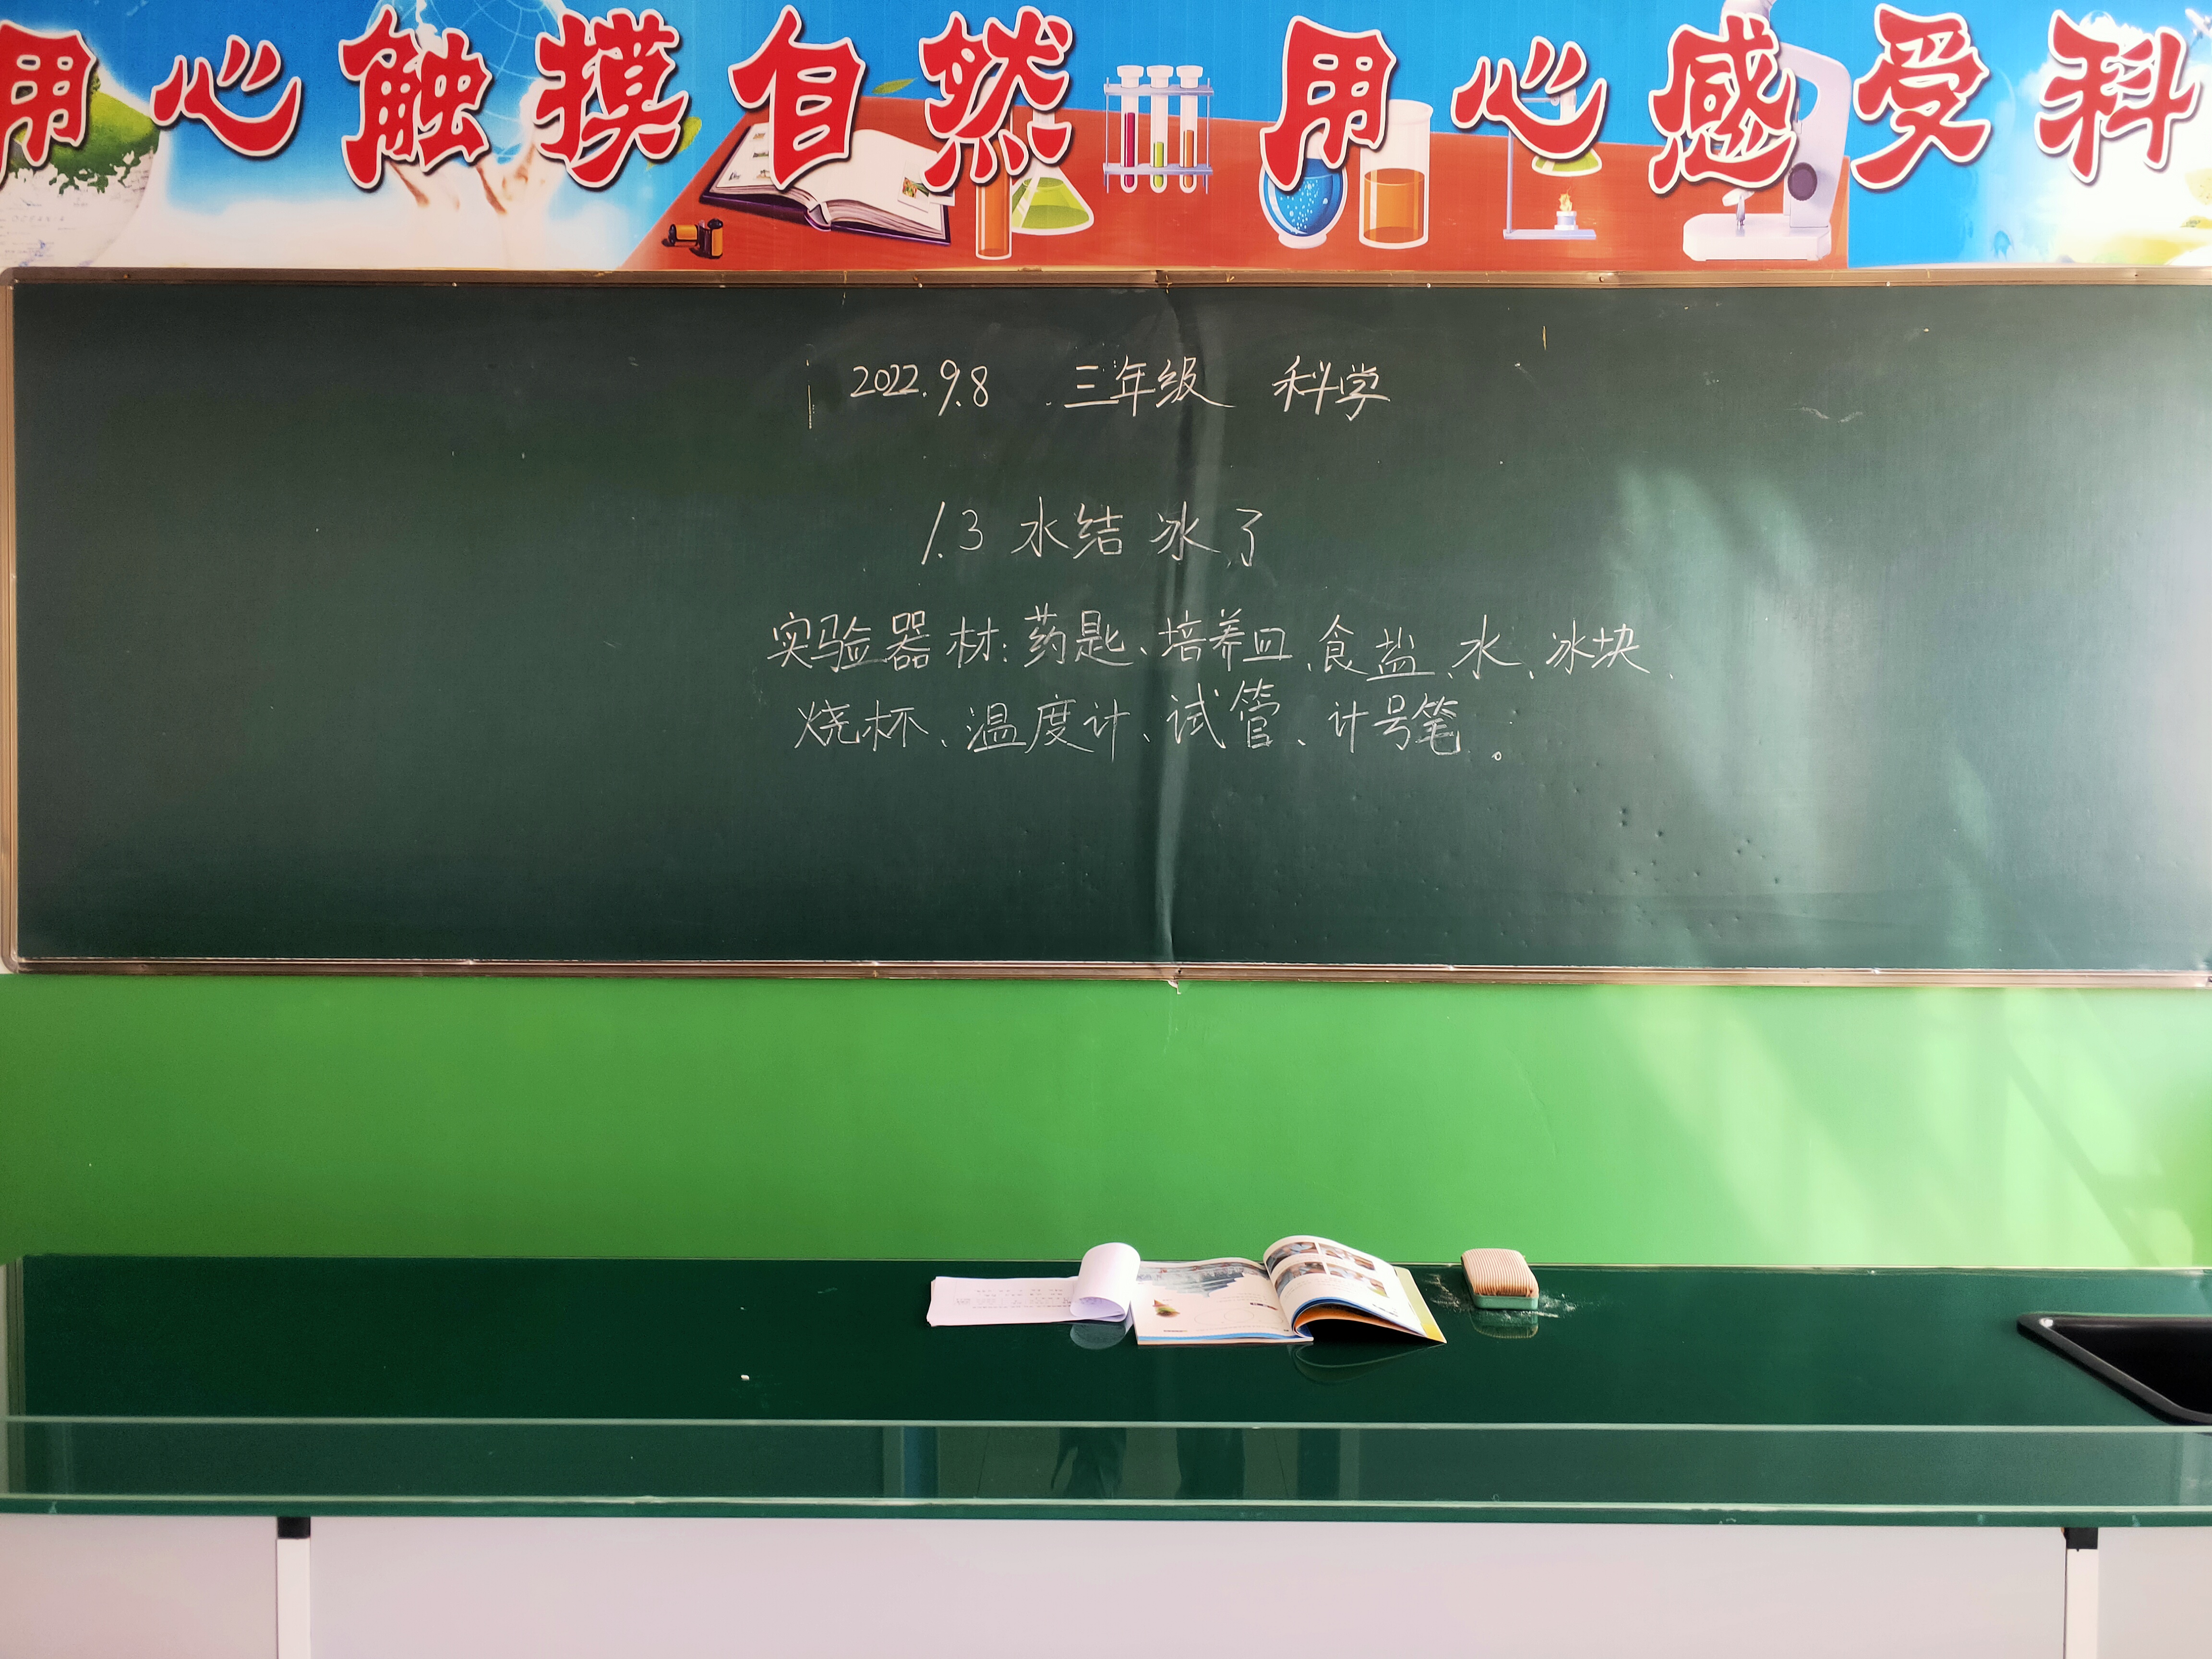 用心触摸自然 用心感受科
2022.9.8 三年级 科学
1.3 水结冰了
实验器材：药匙、培养皿、食盐、水、冰块、
烧杯、温度计、试管、计号笔。